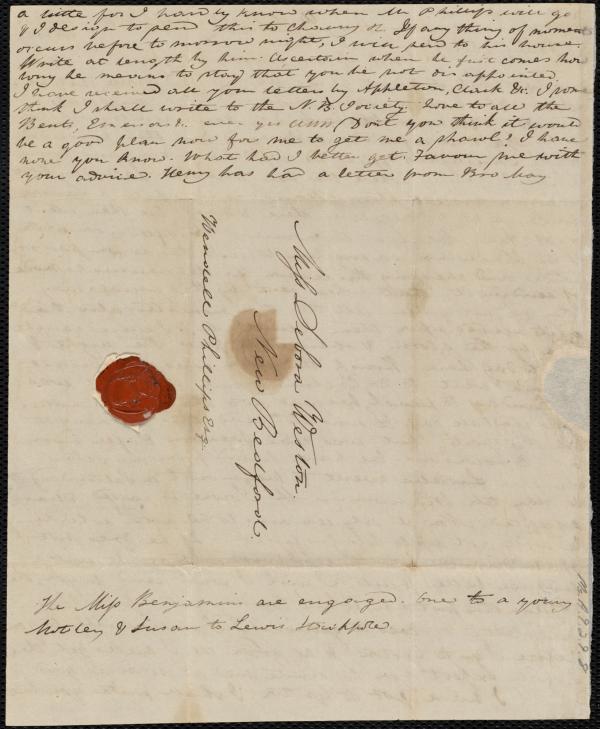 a little for I hardly know when Mr Phillips will go
& I design to send this to Chauncy St. If any thing of moment
occurs before to morrow night, I will send to his house.
Write at length by him. Ascertain when he first comes how
long he means to stay that you be not dis appointed.
I have received all your letters by Appleton, Clark &c. I
think I shall write to the N. B. Society. Love to all the
Bents, Emersons &c. ever yrs Ann Don't you think it would
be a good plan now for me to get me a shawl? I have
none you know. What had I better get. Favour me with
your advice. Henry has had a letter from Bro May
Miss Debora Weston.
New Bedford.
Wendell Phillips Esq.
The Miss Benjamins are engaged. One to a young
Motley & Susan to Lewis Stackpole